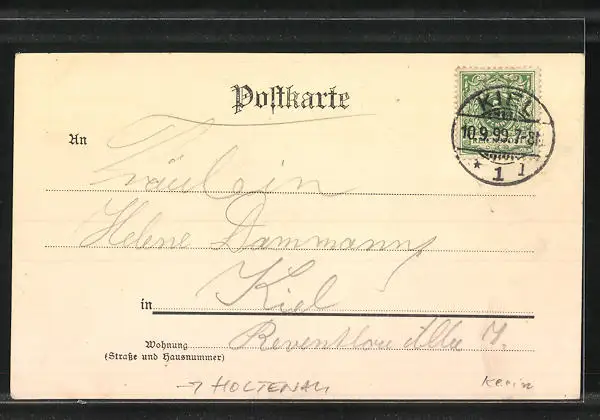 Postkarte
KIEL
10.9.99.7-8
* 1 1
An
Fräulein
Helene Dammann
in Kiel
Wohnung
(Straße und Hausnummer)
Reventlow Allee
→ HOLTENAU